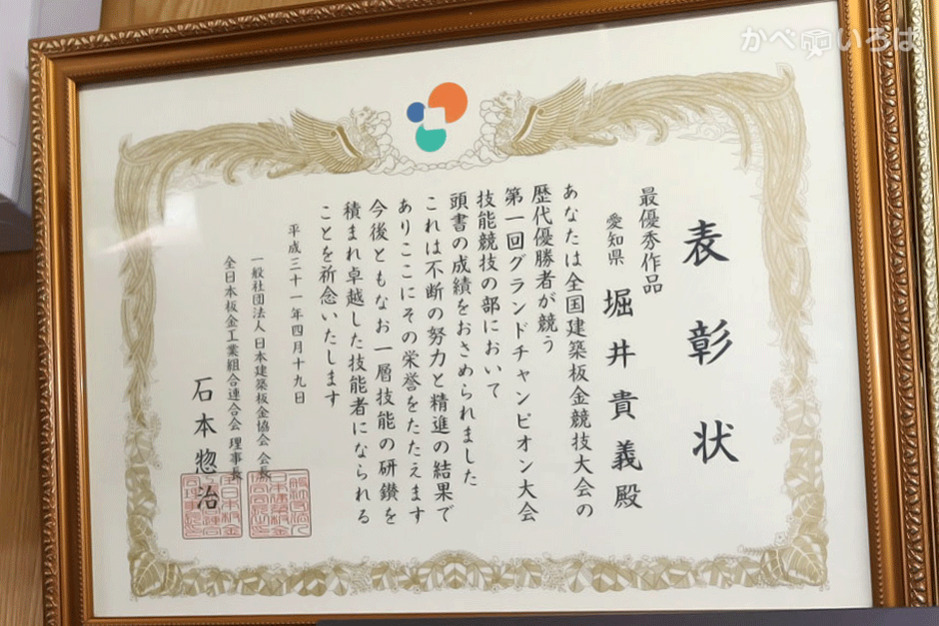 かべいろは
表彰状
最優秀作品
愛知県 堀井貴義殿
あなたは全国建築板金競技大会の
歴代優勝者が競う
第一回グランドチャンピオン大会
技能競技の部において
頭書の成績をおさめられました
これは不断の努力と精進の結果で
ありここにその栄誉をたたえます
今後ともなお一層技能の研鑚を
積まれ卓越した技能者になられる
ことを祈念いたします
平成三十一年四月十九日
一般社団法人日本建築板金協会 会長
全日本板金工業組合連合会 理事長
石本惣治